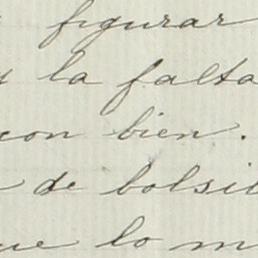 figurar
la falta
con bien.
de bolsil
que lo m